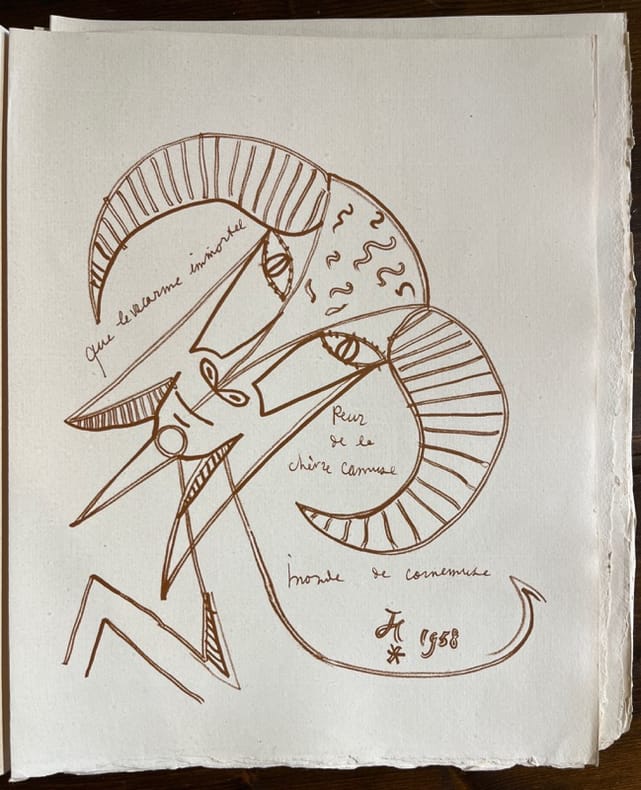 que le vacarme immortel
Peur
de la
chèvre camuse
inonde de cornemuse
JC
* 1958